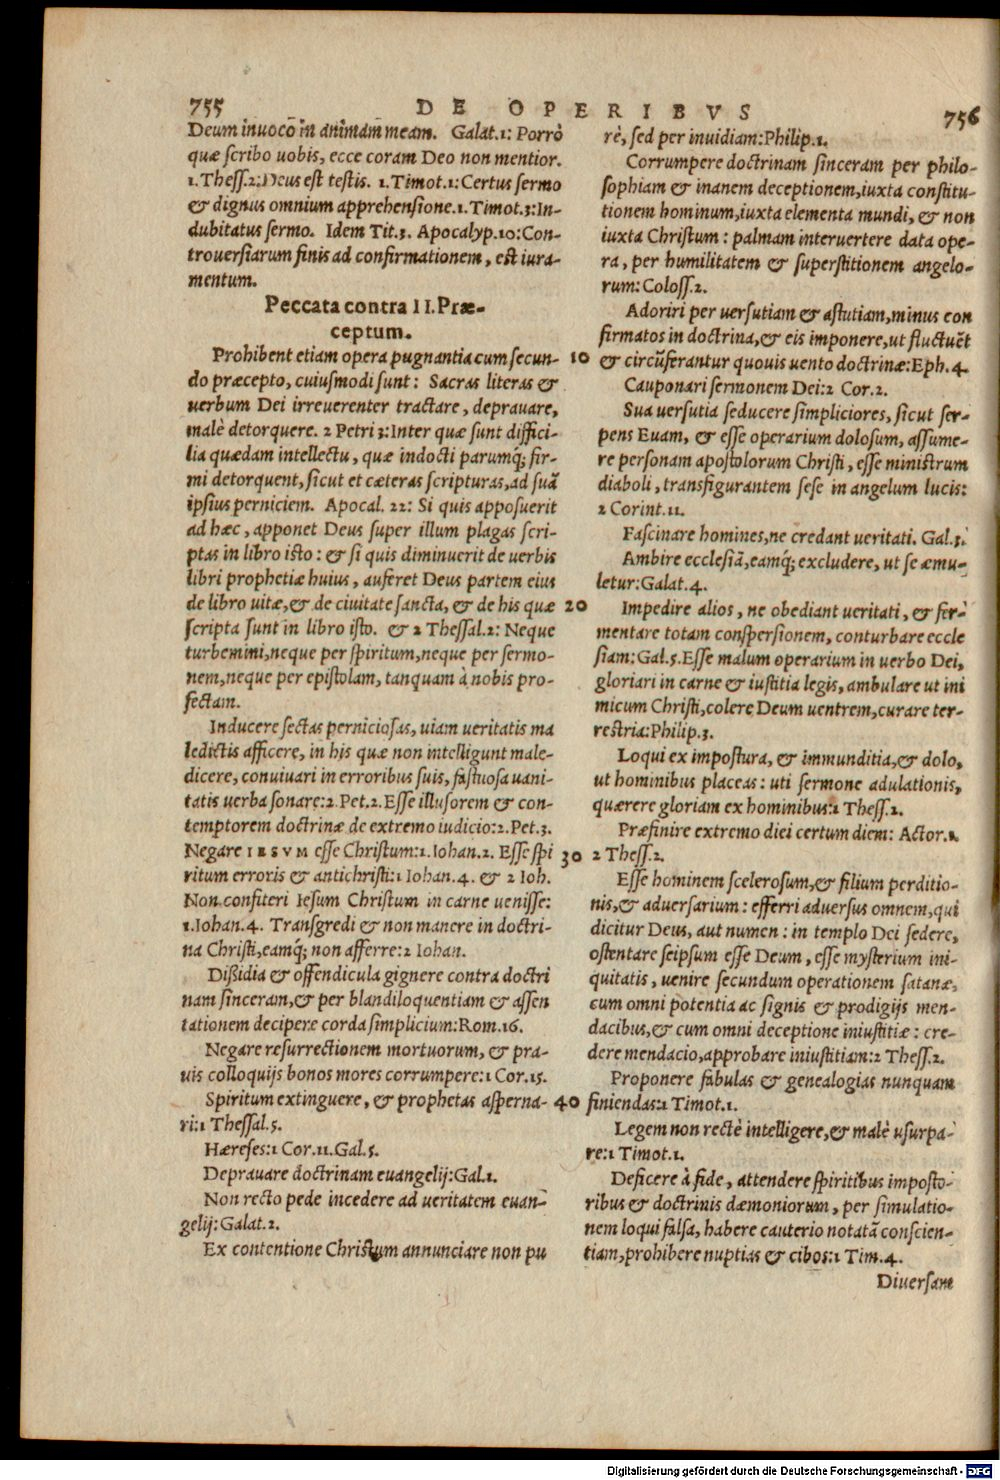 755
DE OPERIBVS
756
Deum inuoco in animam meam. Galat.1: Porrò
quæ scribo uobis, ecce coram Deo non mentior.
1.Thess.2:Deus est testis. 1.Timot.1:Certus sermo
& dignus omnium apprehensione.1.Timot.3:In-
dubitatus sermo. Idem Tit.3. Apocalyp.10:Con-
trouersiarum finis ad confirmationem, est iura-
mentum.
Peccata contra II.Præ-
ceptum.
Prohibent etiam opera pugnantia cum secun-
do præcepto, cuiusmodi sunt: Sacras literas &
uerbum Dei irreuerenter tractare, deprauare,
malè detorquere. 2 Petri 3:Inter quæ sunt diffici-
lia quædam intellectu, quæ indocti parumq́; fir-
mi detorquent, sicut et cæteras scripturas, ad suã
ipsius perniciem. Apocal. 22: Si quis apposuerit
ad hæc, apponet Deus super illum plagas scri-
ptas in libro isto: & si quis diminuerit de uerbis
libri prophetiæ huius, auferet Deus partem eius
de libro uitæ,& de ciuitate sancta, & de his quæ
scripta sunt in libro isto. & 2 Thessal.2: Neque
turbemini,neque per spiritum,neque per sermo-
nem,neque per epistolam, tanquam à nobis pro-
fectam.
Inducere sectas perniciosas, uiam ueritatis ma
ledictis afficere, in his quæ non intelligunt male-
dicere, conuiuari in erroribus suis, fastuosa uani-
tatis uerba sonare:2.Pet.2.Esse illusorem & con-
temptorem doctrinæ de extremo iudicio:2.Pet.3.
Negare IESVM esse Christum:1.Iohan.2. Esse spi
ritum erroris & antichristi:1 Iohan.4. & 2 Ioh.
Non confiteri Iesum Christum in carne uenisse:
1.Iohan.4. Transgredi & non manere in doctri-
na Christi,eamq́; non afferre:2 Iohan.
Dißidia & offendicula gignere contra doctri
nam sinceram,& per blandiloquentiam & assen
tationem decipere corda simplicium:Rom.16.
Negare resurrectionem mortuorum, & pra-
uis colloquijs bonos mores corrumpere:1 Cor.15.
Spiritum extinguere, & prophetas asperna-
ri:1 Thessal.5.
Hæreses:1 Cor.11.Gal.5.
Deprauare doctrinam euangelij:Gal.1.
Non recto pede incedere ad ueritatem euan-
gelij:Galat.2.
Ex contentione Christum annunciare non pu
10
20
30
40
rè, sed per inuidiam:Philip.1.
Corrumpere doctrinam sinceram per philo-
sophiam & inanem deceptionem,iuxta constitu-
tionem hominum,iuxta elementa mundi, & non
iuxta Christum: palmam interuertere data ope-
ra, per humilitatem & superstitionem angelo-
rum:Coloss.2.
Adoriri per uersutiam & astutiam,minus con
firmatos in doctrina,& eis imponere,ut fluctuẽt
& circũferantur quouis uento doctrinæ:Eph.4.
Cauponari sermonem Dei:2 Cor.2.
Sua uersutia seducere simpliciores, sicut ser-
pens Euam, & esse operarium dolosum, assume-
re personam apostolorum Christi, esse ministrum
diaboli, transfigurantem sese in angelum lucis:
2 Corint.11.
Fascinare homines,ne credant ueritati. Gal.3.
Ambire ecclesiã,eamq́; excludere, ut se æmu-
letur:Galat.4.
Impedire alios, ne obediant ueritati, & fer-
mentare totam conspersionem, conturbare eccle
siam:Gal.5.Esse malum operarium in uerbo Dei,
gloriari in carne & iustitia legis, ambulare ut ini
micum Christi,colere Deum uentrem,curare ter-
restria:Philip.3.
Loqui ex impostura, & immunditia,& dolo,
ut hominibus placeas: uti sermone adulationis,
quærere gloriam ex hominibus:1 Thess.2.
Præfinire extremo diei certum diem: Actor.1.
2 Thess.2.
Esse hominem scelerosum,& filium perditio-
nis,& aduersarium: efferri aduersus omnem,qui
dicitur Deus, aut numen: in templo Dei sedere,
ostentare seipsum esse Deum, esse mysterium ini-
quitatis, uenire secundum operationem satanæ,
cum omni potentia ac signis & prodigijs men-
dacibus,& cum omni deceptione iniustitiæ: cre-
dere mendacio,approbare iniustitiam:2 Thess.2.
Proponere fabulas & genealogias nunquam
finiendas:1 Timot.1.
Legem non rectè intelligere,& malè usurpa-
re:1 Timot.1.
Deficere à fide, attendere spiritibus imposto-
ribus & doctrinis dæmoniorum, per simulatio-
nem loqui falsa, habere cauterio notatã conscien-
tiam,prohibere nuptias & cibos:1 Tim.4.
Diuersam
Digitalisierung gefördert durch die Deutsche Forschungsgemeinschaft - DFG